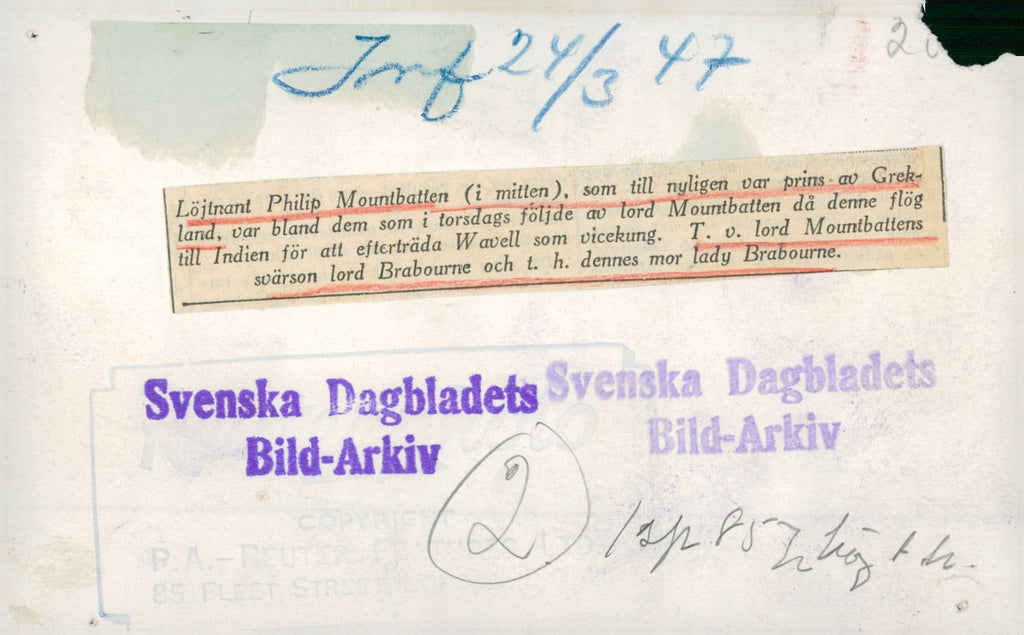 Inf 24/3 47
Löjtnant Philip Mountbatten (i mitten), som till nyligen var prins av Grek-
land, var bland dem som i torsdags följde av lord Mountbatten då denne flög
till Indien för att efterträda Wavell som vicekung. T. v. lord Mountbattens
svärson lord Brabourne och t. h. dennes mor lady Brabourne.
Svenska Dagbladets
Bild-Arkiv
Svenska Dagbladets
Bild-Arkiv
2
1sp 85
COPYRIGHT
P.A.-REUTER FEATURES LTD
85 FLEET STREET